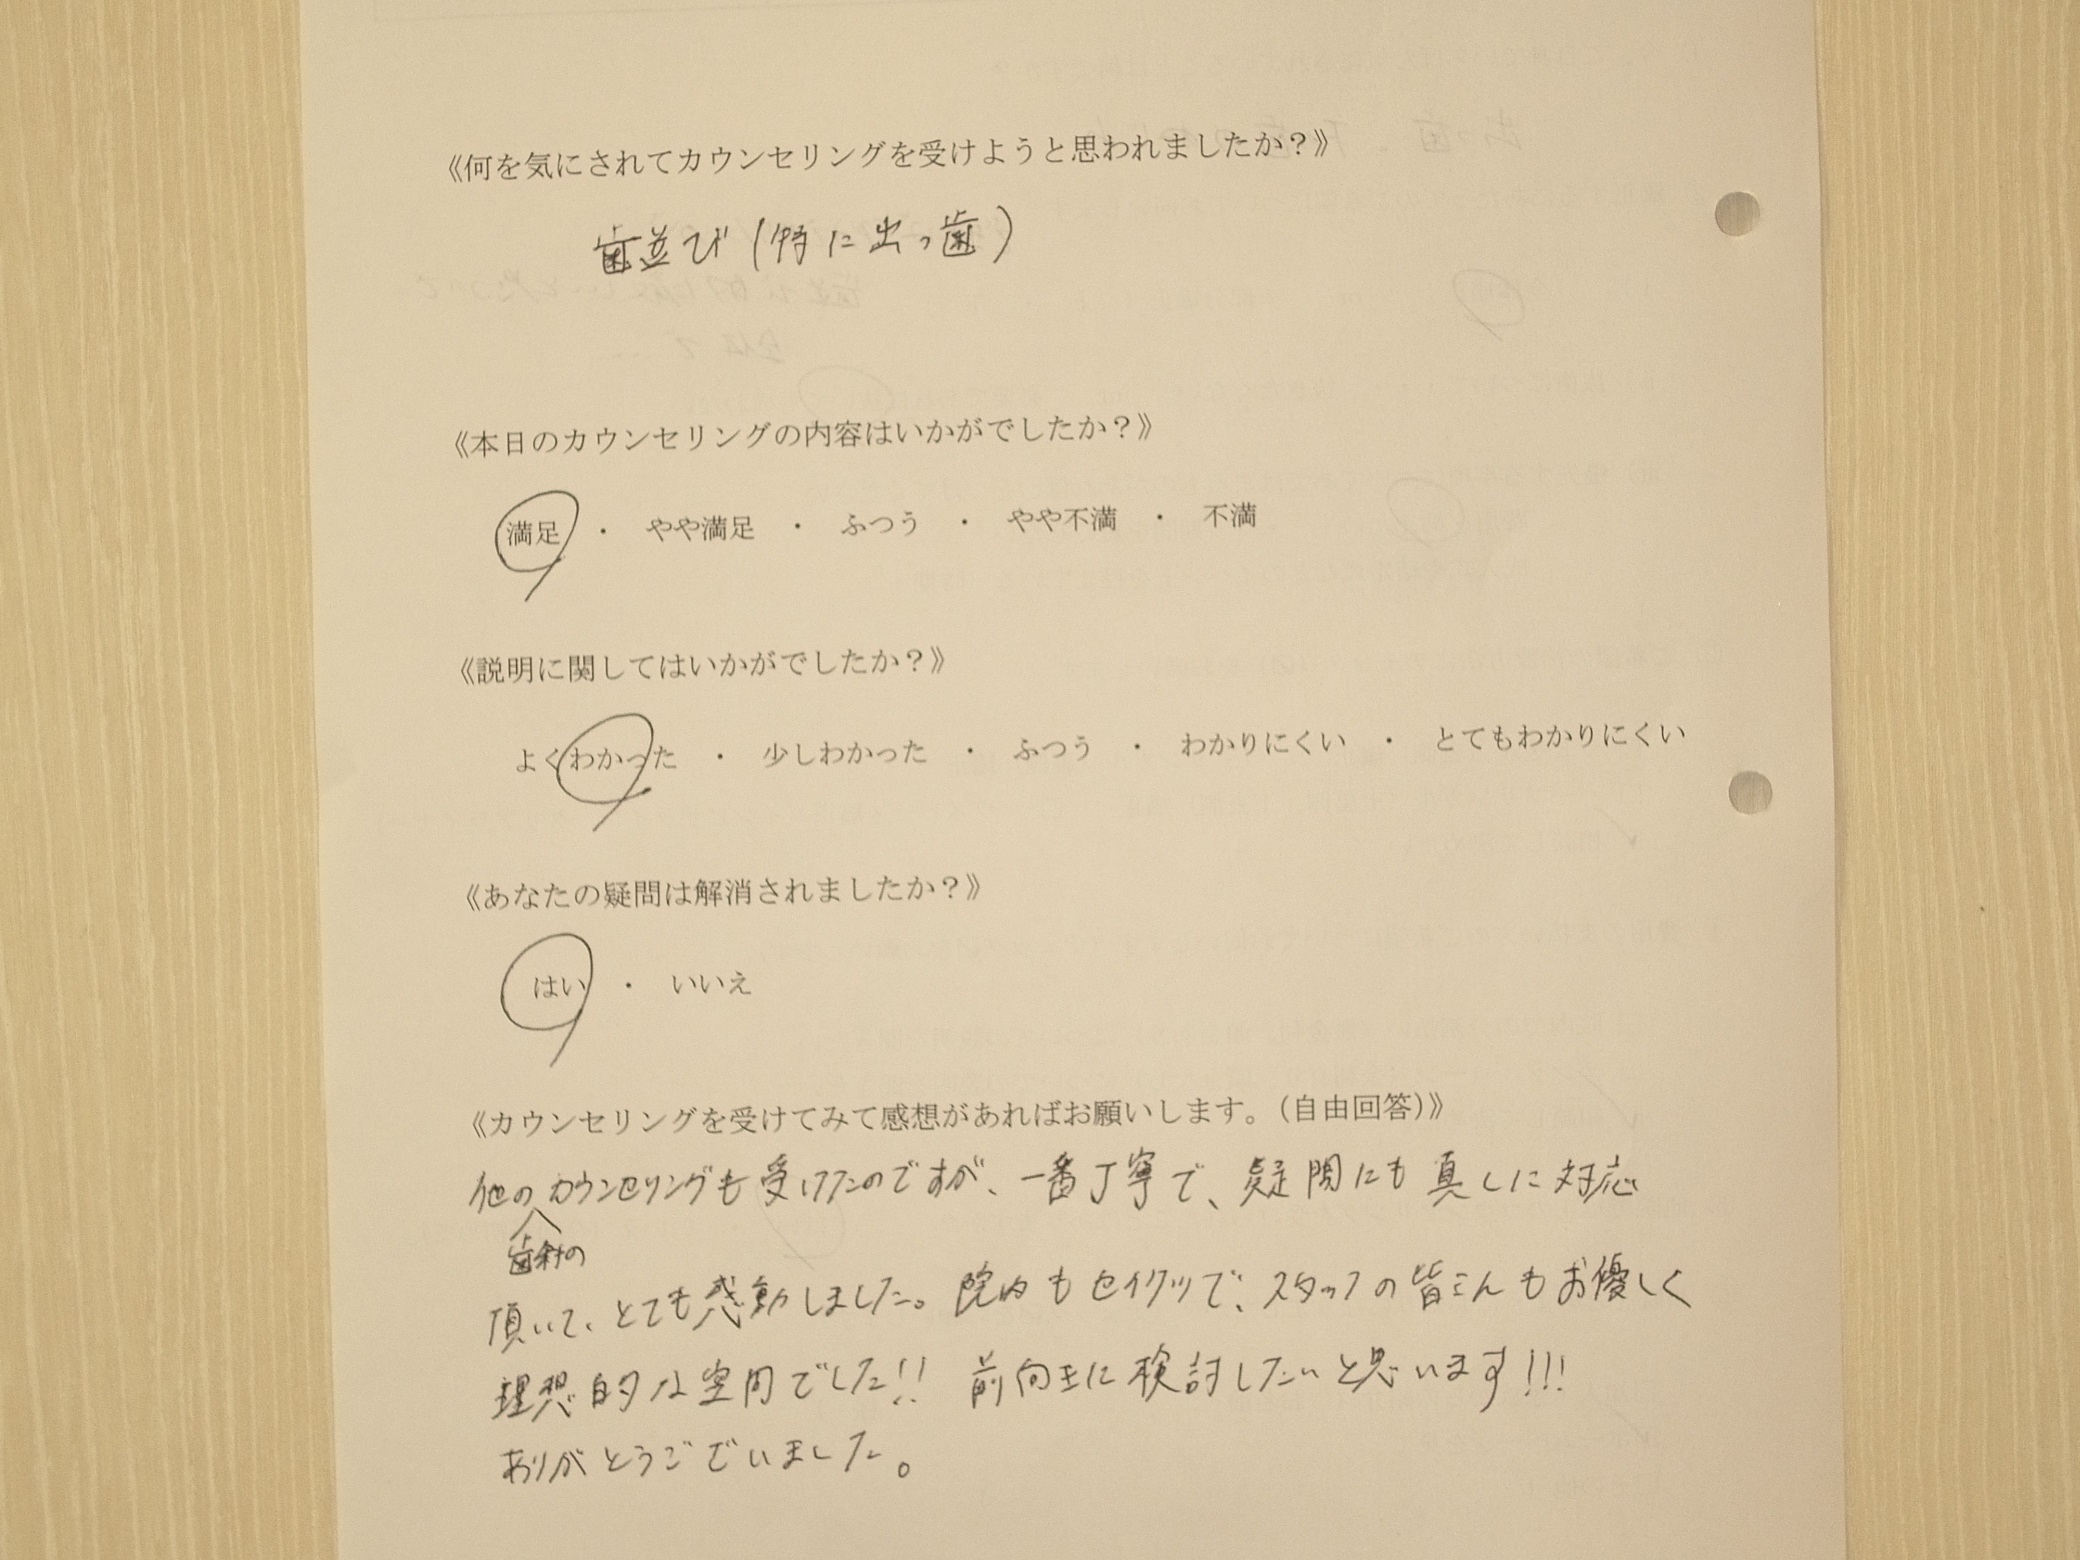 《何を気にされてカウンセリングを受けようと思われましたか?》
歯並び(特に出っ歯)
《本日のカウンセリングの内容はいかがでしたか?》
満足 ・ やや満足 ・ ふつう ・ やや不満 ・ 不満
《説明に関してはいかがでしたか?》
よくわかった ・ 少しわかった ・ ふつう ・ わかりにくい ・ とてもわかりにくい
《あなたの疑問は解消されましたか?》
はい ・ いいえ
《カウンセリングを受けてみて感想があればお願いします。(自由回答)》
他のカウンセリングも受けたのですが、一番丁寧で、疑問にも真しに対応
歯科の
頂いて、とても感動しました。院内もセイケツで、スタッフの皆さんもお優しく
理想的な空間でした!! 前向きに検討したいと思います!!!
ありがとうございました。